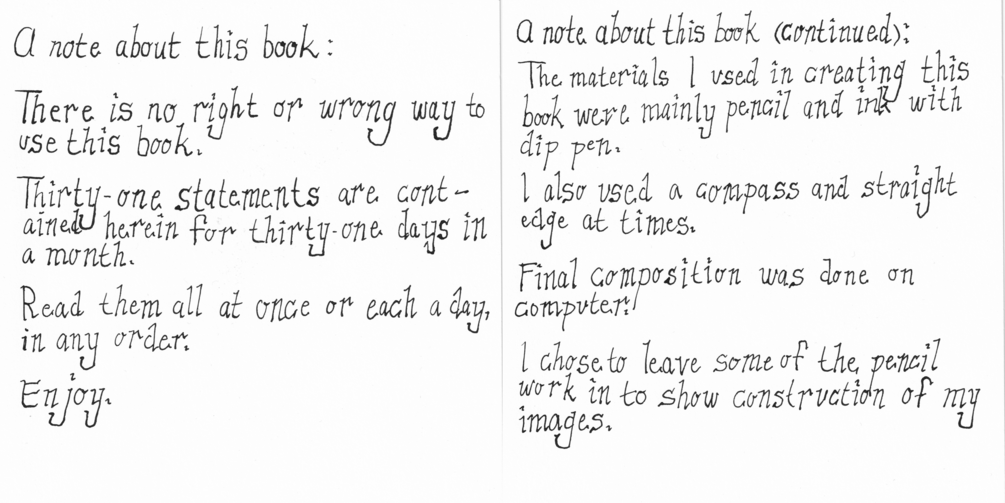 A note about this book:
There is no right or wrong way to
use this book.
Thirty-one statements are cont-
ained herein for thirty-one days in
a month.
Read them all at once or each a day,
in any order.
Enjoy.
A note about this book (continued):
The materials I used in creating this
book were mainly pencil and ink with
dip pen.
I also used a compass and straight
edge at times.
Final composition was done on
computer.
I chose to leave some of the pencil
work in to show construction of my
images.